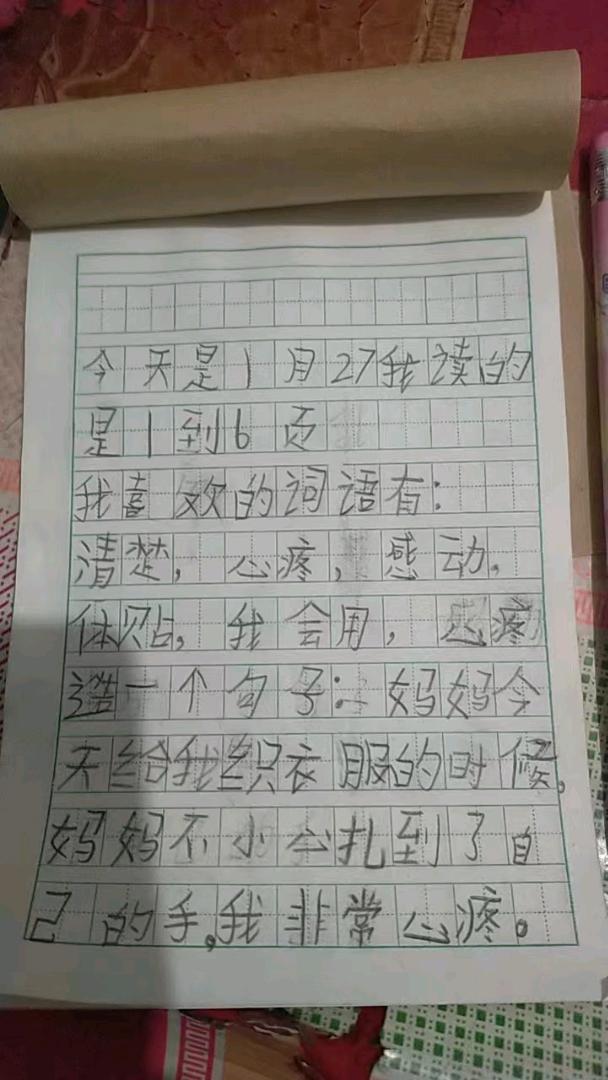 今天是1月27我读的
是1到6页
我喜欢的词语有:
清楚,心疼,感动,
体贴,我会用,心疼
造一个句子:妈妈今
天给我织衣服的时候,
妈妈不小心扎到了自
己的手,我非常心疼。